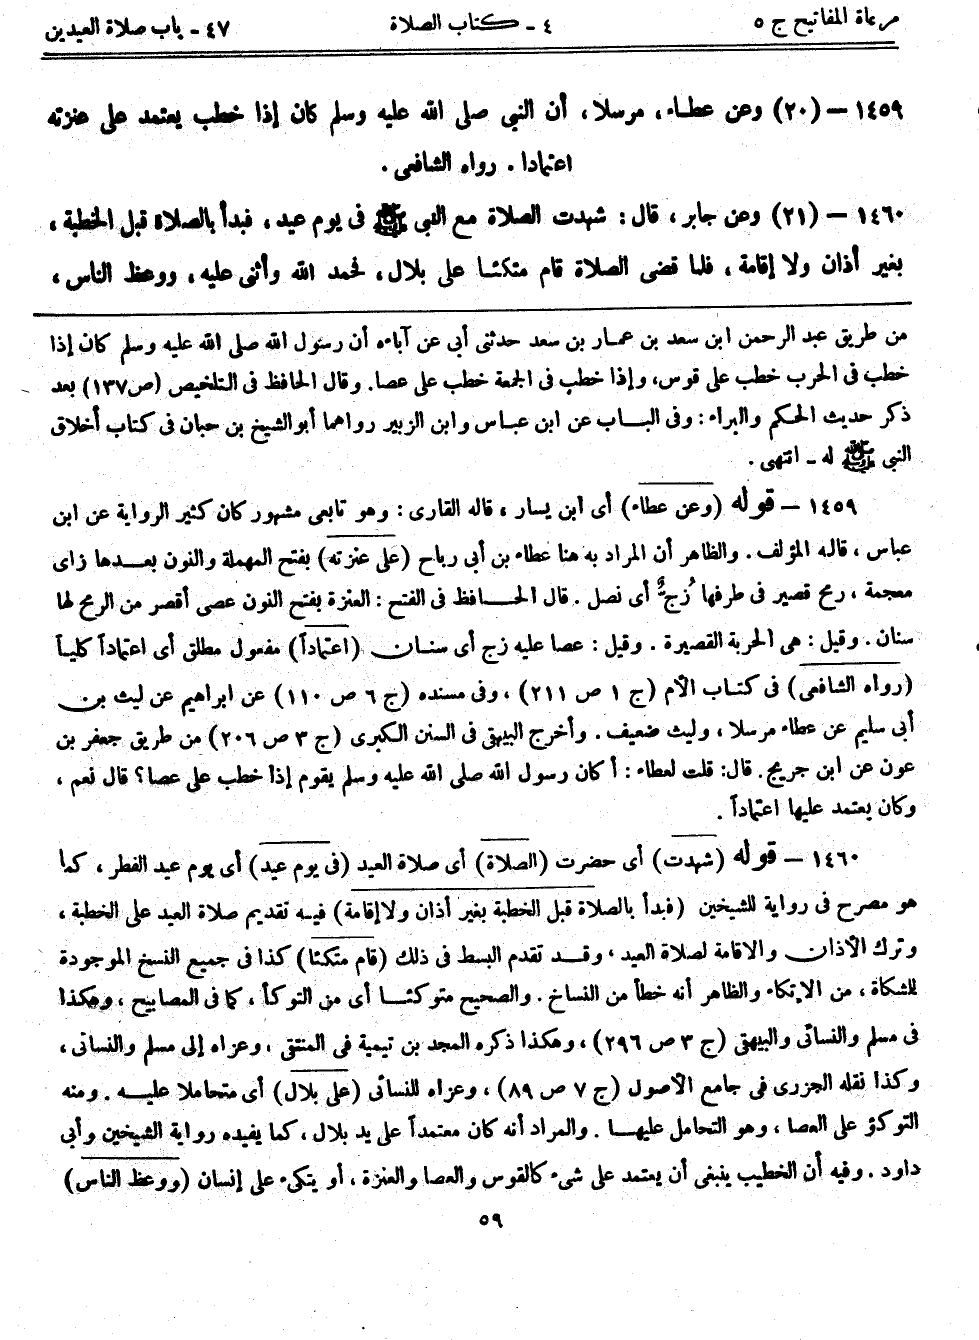 مرعاة المفاتيح ج ٥ ٤ ـ كتاب الصلاة ٤٧ ـ باب صلاة العيدين
١٤٥٩ – (٢٠) وعن عطاء، مرسلا، أن النبى صلى الله عليه وسلم كان إذا خطب يعتمد على عنزته
اعتمادا . رواه الشافعى .
١٤٦٠ – (٢١) وعن جابر، قال : شهدت الصلاة مع النبى ﷺ فى يوم عيد، فبدأ بالصلاة قبل الخطبة،
بغير أذان ولا إقامة، فلما قضى الصلاة قام متكئا على بلال، فحمد الله وأثنى عليه، ووعظ الناس،
من طريق عبد الرحمن ابن سعد بن عمار بن سعد حدثنى أبى عن آباءه أن رسول الله صلى الله عليه وسلم كان إذا
خطب فى الحرب خطب على قوس، وإذا خطب فى الجمعة خطب على عصا. وقال الحافظ فى التلخيص (ص ١٣٧) بعد
ذكر حديث الحكم والبراء : وفى الباب عن ابن عباس وابن الزبير رواهما أبو الشيخ بن حبان فى كتاب أخلاق
النبى ﷺ له ـ انتهى .
١٤٥٩ – قوله (وعن عطاء) أى ابن يسار، قاله القارى : وهو تابعى مشهور كان كثير الرواية عن ابن
عباس، قاله المؤلف. والظاهر أن المراد به هنا عطاء بن أبى رباح (على عنزته) بفتح المهملة والنون بعدها زاى
معجمة، رمح قصير فى طرفها زُجٌّ أى نصل . قال الحافظ فى الفتح : العنزة بفتح النون عصى أقصر من الرمح لها
سنان . وقيل : هى الحربة القصيرة . وقيل : عصا عليه زج أى سنان (اعتماداً) مفعول مطلق أى اعتماداً كلياً
(رواه الشافعى) فى كتاب الأم (ج ١ ص ٢١١)، وفى مسنده (ج ٦ ص ١١٠) عن ابراهيم عن ليث بن
أبى سليم عن عطاء مرسلا، وليث ضعيف . وأخرج البيهقى فى السنن الكبرى (ج ٣ ص ٢٠٦) من طريق جعفر بن
عون عن ابن جريج. قال: قلت لعطاء : أ كان رسول الله صلى الله عليه وسلم يقوم إذا خطب على عصا؟ قال نعم،
وكان يعتمد عليها اعتماداً .
١٤٦٠ – قوله (شهدت) أى حضرت (الصلاة) أى صلاة العيد (فى يوم عيد) أى يوم عيد الفطر، كما
هو مصرح فى رواية للشيخين (فبدأ بالصلاة قبل الخطبة بغير أذان ولا إقامة) فيه تقديم صلاة العيد على الخطبة،
وترك الأذان والاقامة لصلاة العيد، وقد تقدم البسط فى ذلك (قام متكئا) كذا فى جميع النسخ الموجودة
للشكاة، من الإتكاء والظاهر أنه خطأ من النساخ . والصحيح متوكئا أى من التوكأ، كما فى المصابيح، وهكذا
فى مسلم والنسائى والبيهقى (ج ٣ ص ٢٩٦)، وهكذا ذكره المجد بن تيمية فى المنتقى، وعزاه إلى مسلم والنسائى،
وكذا نقله الجزرى فى جامع الأصول (ج ٧ ص ٨٩)، وعزاه للنسائى (على بلال) أى متحاملا عليه . ومنه
التوكؤ على العصا، وهو التحامل عليها . والمراد أنه كان معتمداً على يد بلال، كما يفيده رواية الشيخين وأبى
داود . وفيه أن الخطيب ينبغى أن يعتمد على شىء كالقوس والعصا والعنزة، أو يتكىء على إنسان (ووعظ الناس)
٥٩